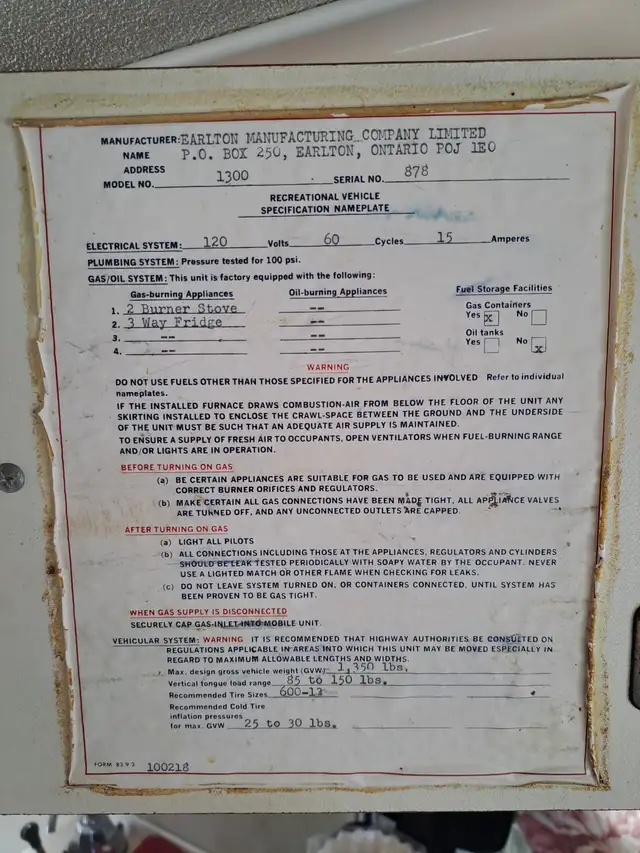 MANUFACTURER: EARLTON MANUFACTURING COMPANY LIMITED
NAME P.O. BOX 250, EARLTON, ONTARIO POJ 1EO
ADDRESS
MODEL NO. 1300 SERIAL NO. 878
RECREATIONAL VEHICLE
SPECIFICATION NAMEPLATE
ELECTRICAL SYSTEM: 120 Volts 60 Cycles 15 Amperes
PLUMBING SYSTEM: Pressure tested for 100 psi.
GAS/OIL SYSTEM: This unit is factory equipped with the following:
Gas-burning Appliances Oil-burning Appliances Fuel Storage Facilities
1. 2 Burner Stove -- Gas Containers
2. 3 Way Fridge -- Yes x No
3. -- -- Oil tanks
4. -- -- Yes No x
WARNING
DO NOT USE FUELS OTHER THAN THOSE SPECIFIED FOR THE APPLIANCES INVOLVED Refer to individual
nameplates.
IF THE INSTALLED FURNACE DRAWS COMBUSTION-AIR FROM BELOW THE FLOOR OF THE UNIT ANY
SKIRTING INSTALLED TO ENCLOSE THE CRAWL-SPACE BETWEEN THE GROUND AND THE UNDERSIDE
OF THE UNIT MUST BE SUCH THAT AN ADEQUATE AIR SUPPLY IS MAINTAINED.
TO ENSURE A SUPPLY OF FRESH AIR TO OCCUPANTS, OPEN VENTILATORS WHEN FUEL-BURNING RANGE
AND/OR LIGHTS ARE IN OPERATION.
BEFORE TURNING ON GAS
(a) BE CERTAIN APPLIANCES ARE SUITABLE FOR GAS TO BE USED AND ARE EQUIPPED WITH
CORRECT BURNER ORIFICES AND REGULATORS.
(b) MAKE CERTAIN ALL GAS CONNECTIONS HAVE BEEN MADE TIGHT, ALL APPLIANCE VALVES
ARE TURNED OFF, AND ANY UNCONNECTED OUTLETS ARE CAPPED.
AFTER TURNING ON GAS
(a) LIGHT ALL PILOTS
(b) ALL CONNECTIONS INCLUDING THOSE AT THE APPLIANCES, REGULATORS AND CYLINDERS
SHOULD BE LEAK TESTED PERIODICALLY WITH SOAPY WATER BY THE OCCUPANT. NEVER
USE A LIGHTED MATCH OR OTHER FLAME WHEN CHECKING FOR LEAKS.
(c) DO NOT LEAVE SYSTEM TURNED ON, OR CONTAINERS CONNECTED, UNTIL SYSTEM HAS
BEEN PROVEN TO BE GAS TIGHT.
WHEN GAS SUPPLY IS DISCONNECTED
SECURELY CAP GAS-INLET INTO MOBILE UNIT.
VEHICULAR SYSTEM: WARNING IT IS RECOMMENDED THAT HIGHWAY AUTHORITIES BE CONSULTED ON
REGULATIONS APPLICABLE IN AREAS INTO WHICH THIS UNIT MAY BE MOVED ESPECIALLY IN
REGARD TO MAXIMUM ALLOWABLE LENGTHS AND WIDTHS.
Max. design gross vehicle weight (GVW) 1,350 lbs.
Vertical tongue load range 85 to 150 lbs.
Recommended Tire Sizes 600-12
Recommended Cold Tire
inflation pressures
for max. GVW 25 to 30 lbs.
FORM 83 9 2 100218